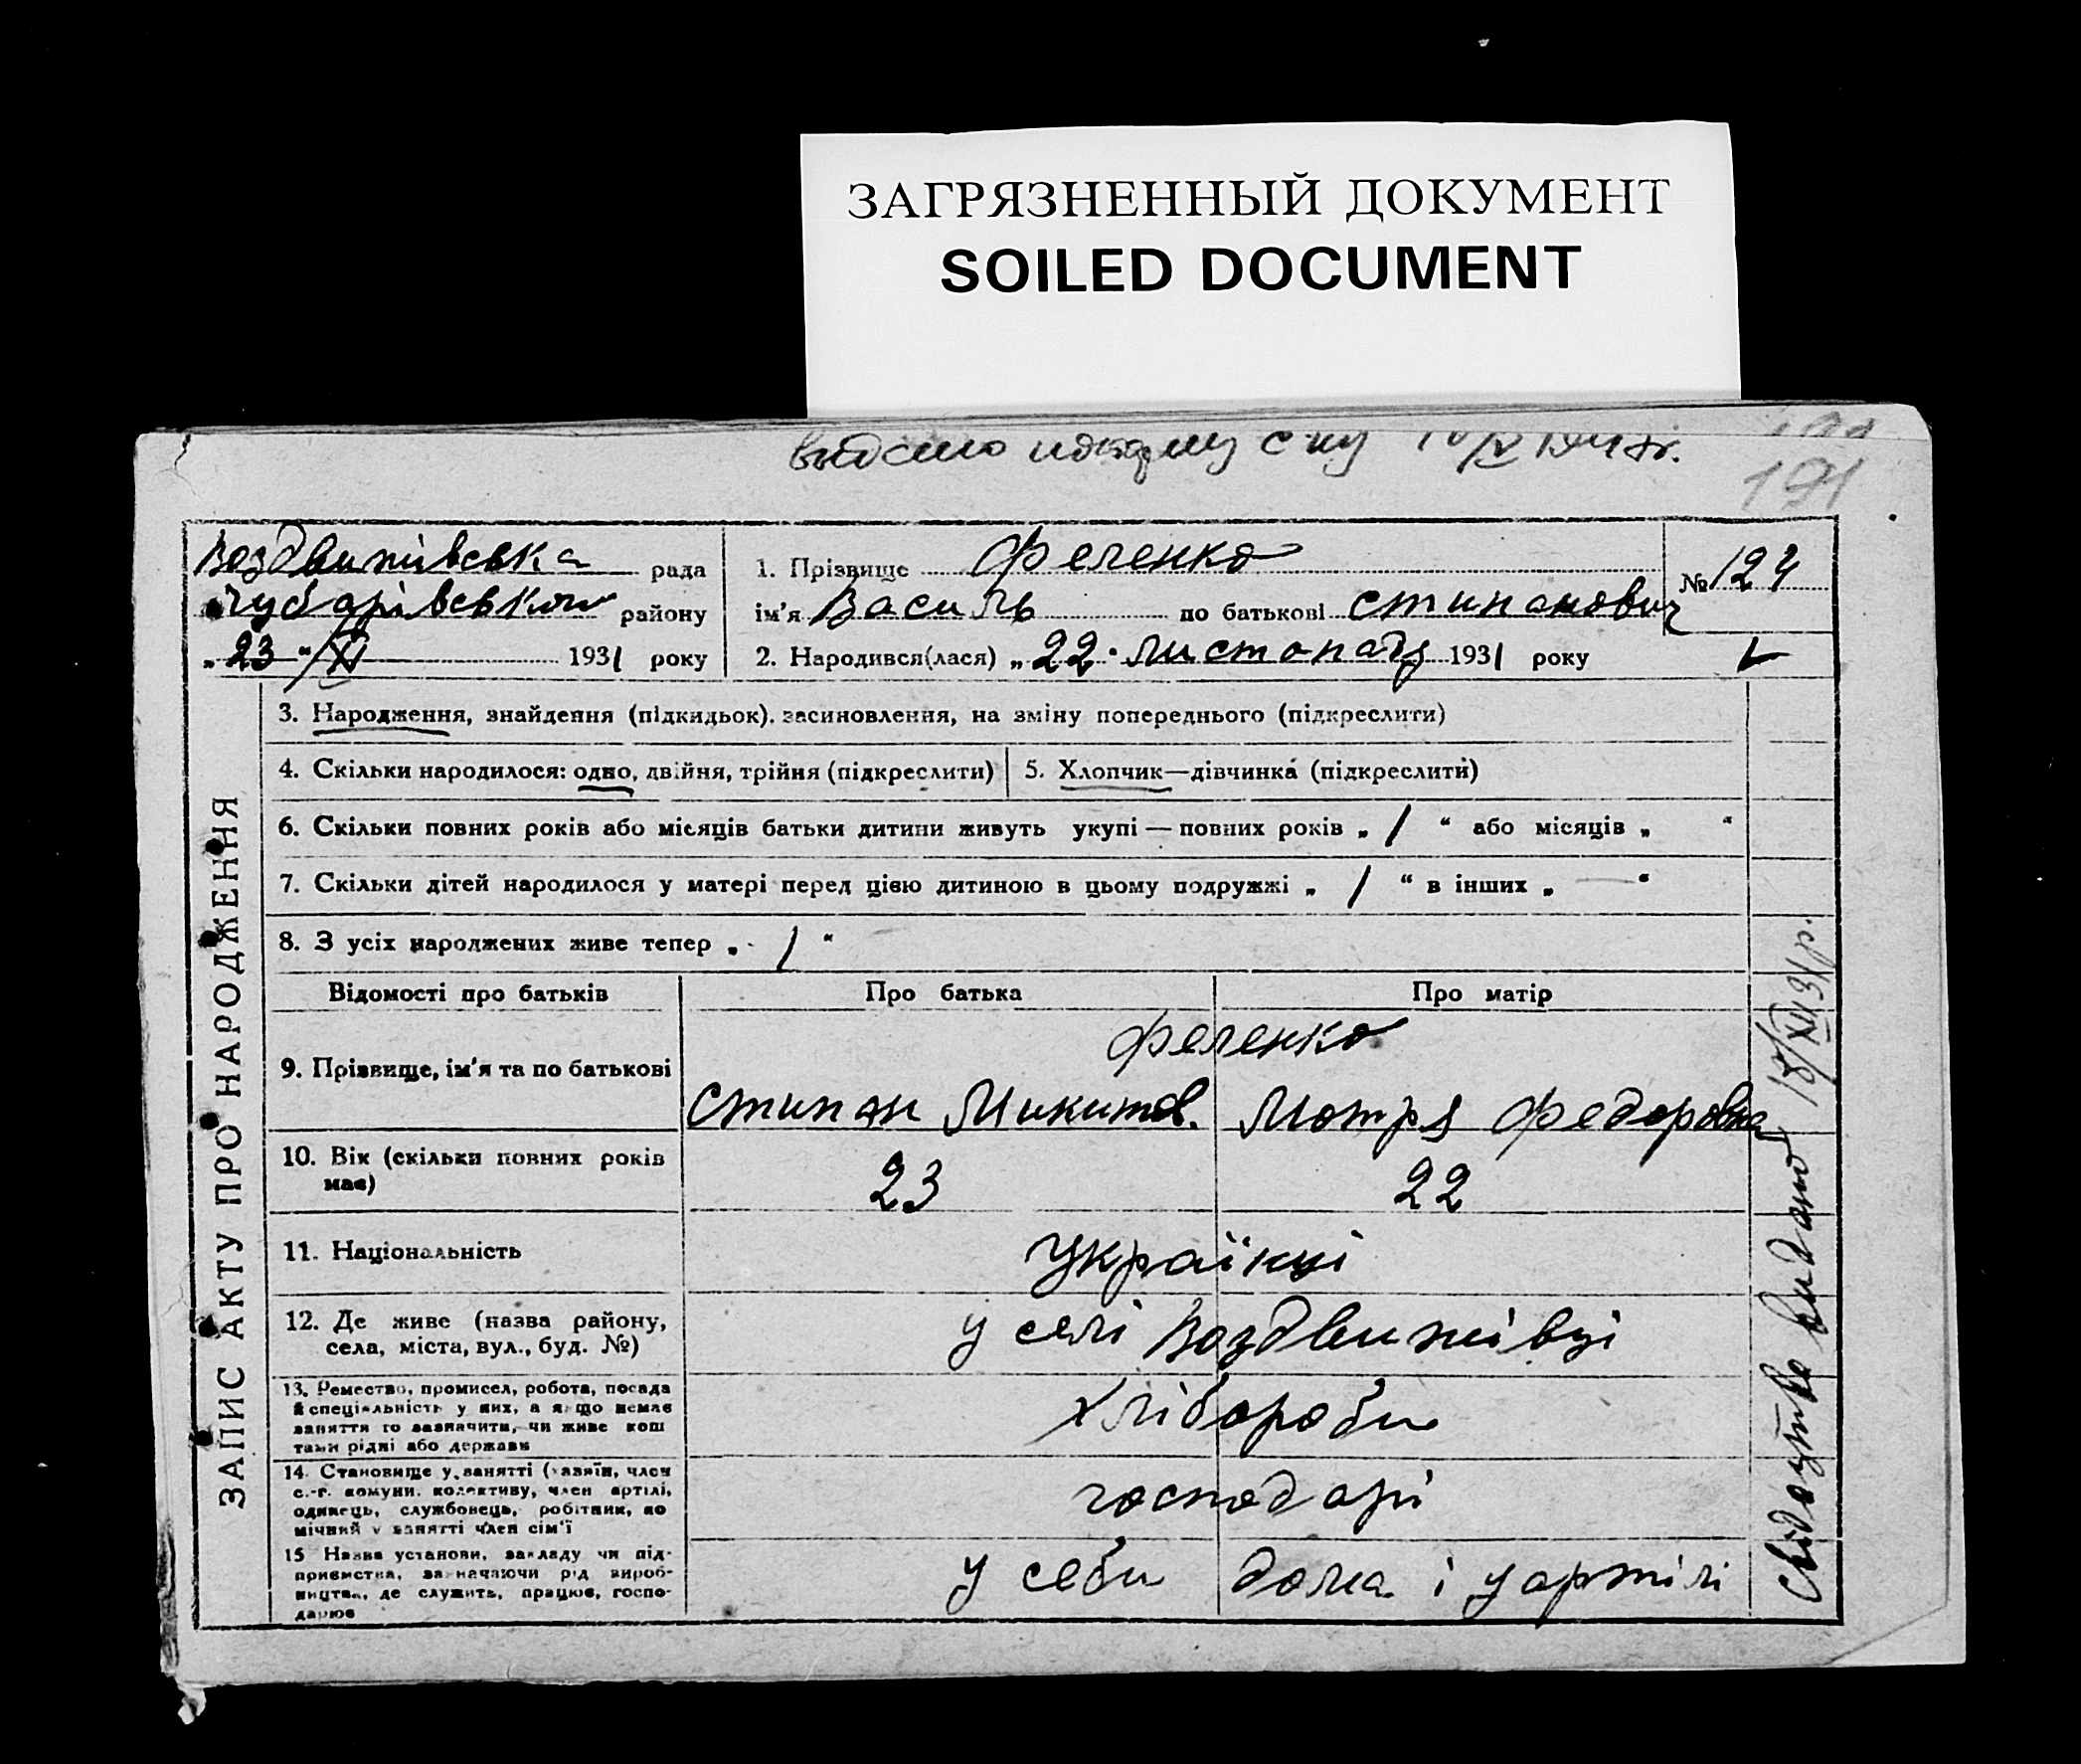 ЗАГРЯЗНЕННЫЙ ДОКУМЕНТ
SOILED DOCUMENT
видано
191
Воздвижівська рада
Чубарівського району
„23“/XI 1931 року
1. Прізвище Феленко
ім'я Василь по батькові Стипанович
№ 124
2. Народився(лася) „22“ листопаду 1931 року
3. Народження, знайдення (підкидьок), засиновлення, на зміну попереднього (підкреслити)
4. Скільки народилося: одно, двійня, трійня (підкреслити)
5. Хлопчик—дівчинка (підкреслити)
6. Скільки повних років або місяців батьки дитини живуть укупі — повних років „ 1 “ або місяців „ “
7. Скільки дітей народилося у матері перед цією дитиною в цьому подружжі „ 1 “ в інших „ — “
8. З усіх народжених живе тепер „ 1 “
Відомості про батьків
Про батька
Про матір
9. Прізвище, ім'я та по батькові
Феленко
Стипан Микитов.
Мотря Федоровна
10. Вік (скільки повних років має)
23
22
11. Національність
Українці
12. Де живе (назва району,
села, міста, вул., буд. №)
у селі Воздвижівці
13. Ремество, промисел, робота, посада
й спеціяльність у них, а якщо немає
заняття то зазначити, чи живе кош
тами рідні або держави
хлібороби
14. Становище у занятті (хазяїн, член
с.-г. комуни, колективу, член артілі,
одинець, службовець, робітник, по
мічний у занятті член сім'ї
господарі
15 Назва установи, закладу чи під-
приємства, зазначаючи рід вироб-
ництва, де служить, працює, госпо-
дарює
у себи дома і у артілі
ЗАПИС АКТУ ПРО НАРОДЖЕННЯ
Свідоцтво видано 18/XII 31 р.